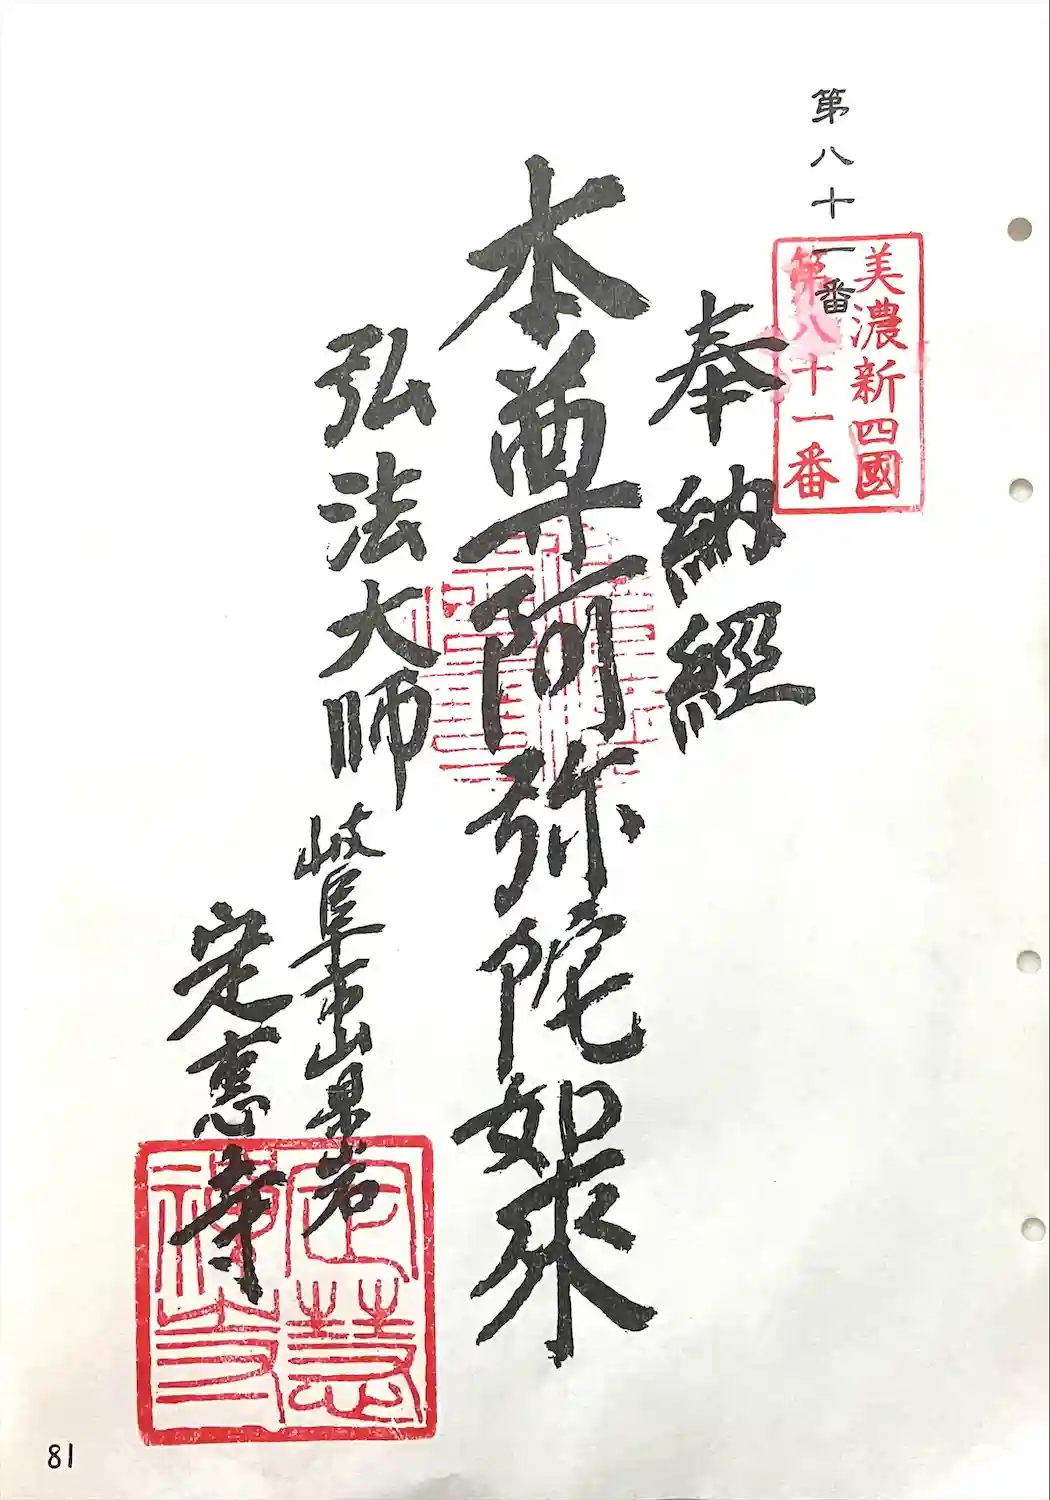 第八十一番
美濃新四國
第八十一番
奉納経
本尊阿弥陀如来
弘法大師
岐阜市山県岩
定恵寺
定慧
禅寺
81